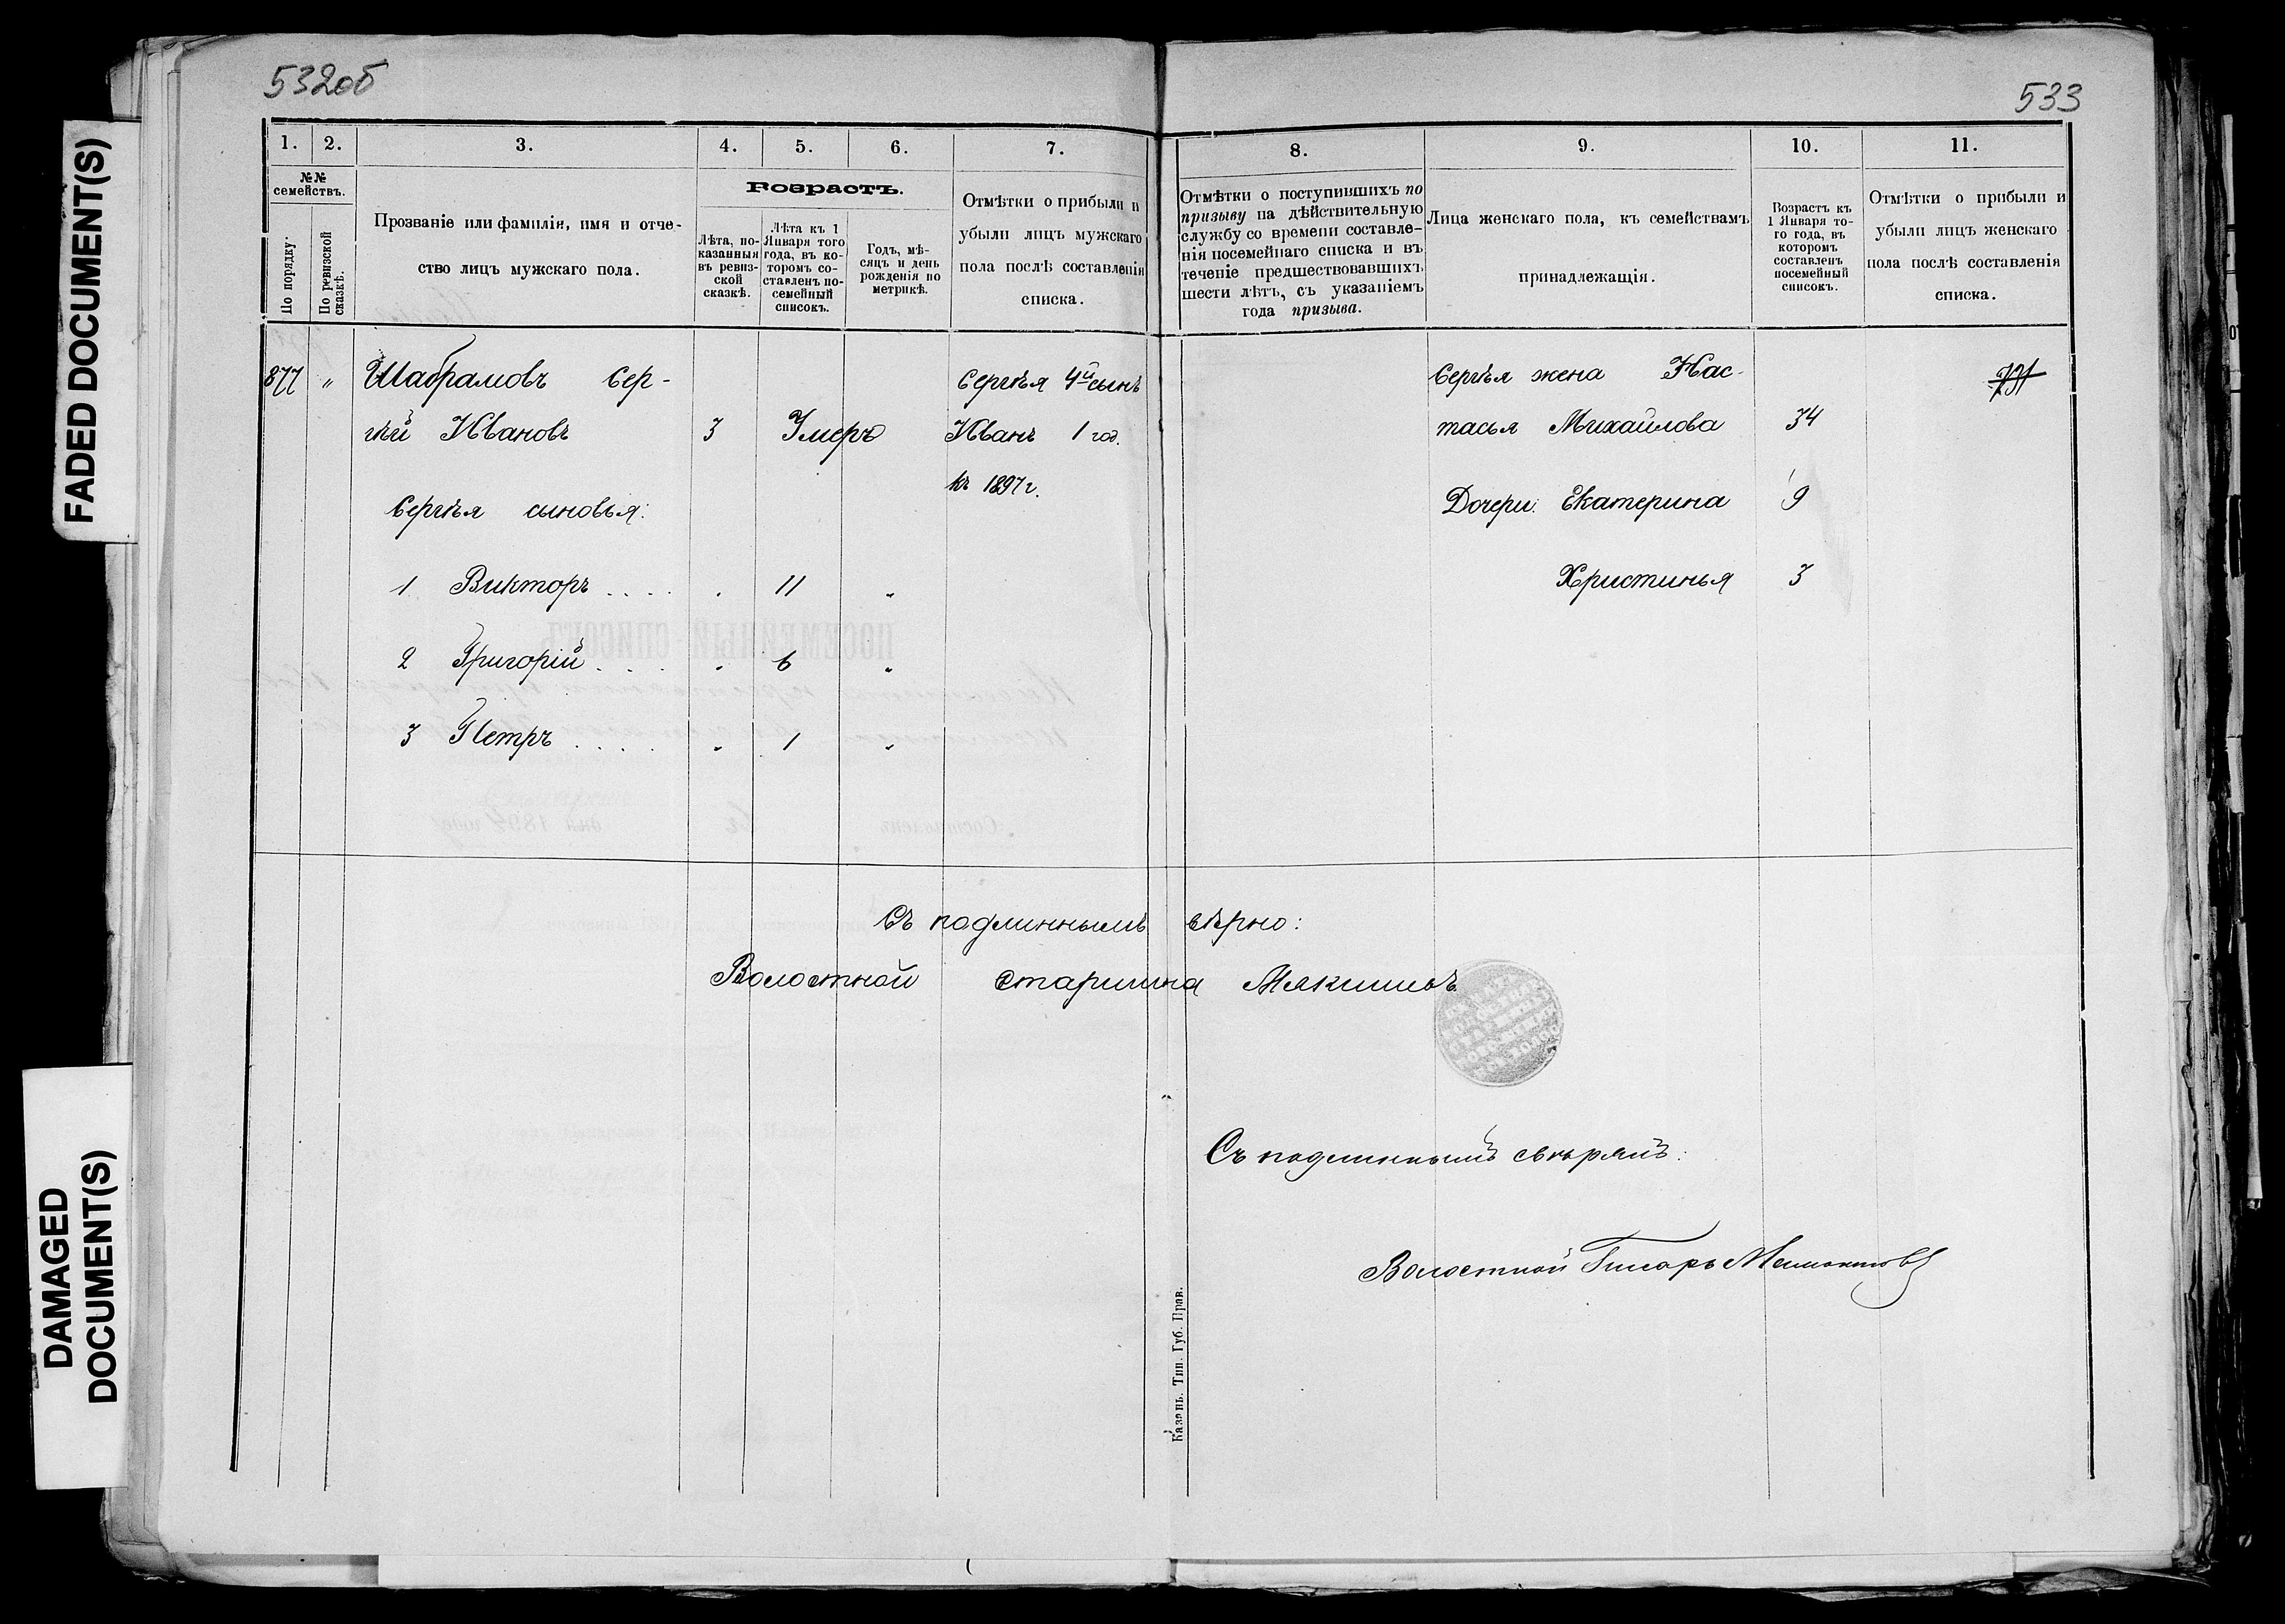 532об
533
FADED DOCUMENT(S)
DAMAGED
DOCUMENT(S)
1. 2. 3. 4. 5. 6. 7.
№№
семействъ.
По порядку.
По ревизской
сказкѣ.
Прозваніе или фамилія, имя и отче-
ство лицъ мужскаго пола.
Возрастъ.
Лѣта, по-
казанныя
въ ревиз-
ской
сказкѣ.
Лѣта къ 1
Января того
года, въ ко-
торомъ со-
ставленъ по-
семейный
списокъ.
Годъ, мѣ-
сяцъ и день
рожденія по
метрикѣ.
Отмѣтки о прибыли и
убыли лицъ мужскаго
пола послѣ составленія
списка.
8. 9. 10. 11.
Отмѣтки о поступившихъ по
призыву на дѣйствительную
службу со времени составле-
нія посемейнаго списка и въ
теченіе предшествовавшихъ
шести лѣтъ, съ указаніемъ
года призыва.
Лица женскаго пола, къ семействамъ
принадлежащія.
Возрастъ къ
1 Января то-
го года, въ
которомъ
составленъ
посемейный
списокъ.
Отмѣтки о прибыли и
убыли лицъ женскаго
пола послѣ составленія
списка.
877 „ Шабрамовъ Сер-
гѣй Ивановъ 3 Умеръ
Сергѣя сыновья:
1 Викторъ . . . . . 11 „
2 Григорій . . . „ 6 „
3 Петръ . . . . „ 1 „
Сергѣя 4й сынъ
Иванъ 1 год.
къ 1897 г.
Сергѣя жена Нас-
тасья Михайлова 34
Дочери: Екатерина 9
Христинья 3
731
Съ подлиннымъ вѣрно:
Волостной старшина Мякишевъ
Съ подлиннымъ свѣрялъ:
Волостной Писарь
Казань. Тип. Губ. Прав.